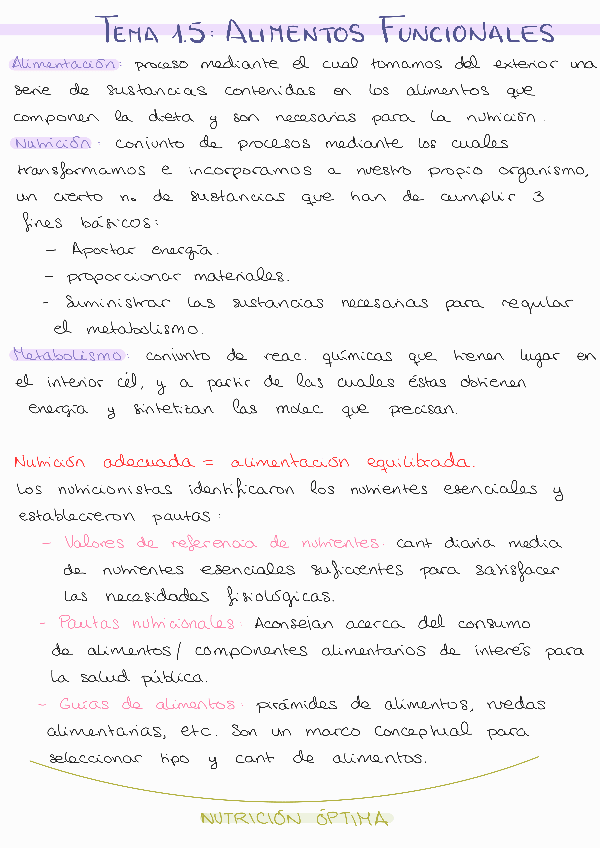 TEMA 15: ALIMENTOS FUNCIONALES
Alimentación: proceso mediante el cual tomamos del exterior una
serie de sustancias contenidas en los alimentos que
componen la dieta y son necesarias para la nutrición.
Nutrición: conjunto de procesos mediante los cuales
transformamos e incorporamos a nuestro propio organismo,
un cierto nº de sustancias que han de cumplir 3
fines básicos:
- Aportar energía.
- proporcionar materiales.
- Suministrar las sustancias necesarias para regular
el metabolismo.
Metabolismo: conjunto de reac. químicas que tienen lugar en
el interior cél, y a partir de las cuales éstas obtienen
energía y sintetizan las molec que precisan.
Nutrición adecuada = alimentación equilibrada.
Los nutricionistas identificaron los nutrientes esenciales y
establecieron pautas:
- Valores de referencia de nutrientes: cant diaria media
de nutrientes esenciales suficientes para satisfacer
las necesidades fisiológicas.
- Pautas nutricionales: Aconsejan acerca del consumo
de alimentos/ componentes alimentarios de interés para
la salud pública.
- Guías de alimentos: pirámides de alimentos, ruedas
alimentarias, etc. Son un marco conceptual para
seleccionar tipo y cant de alimentos.
NUTRICIÓN ÓPTIMA